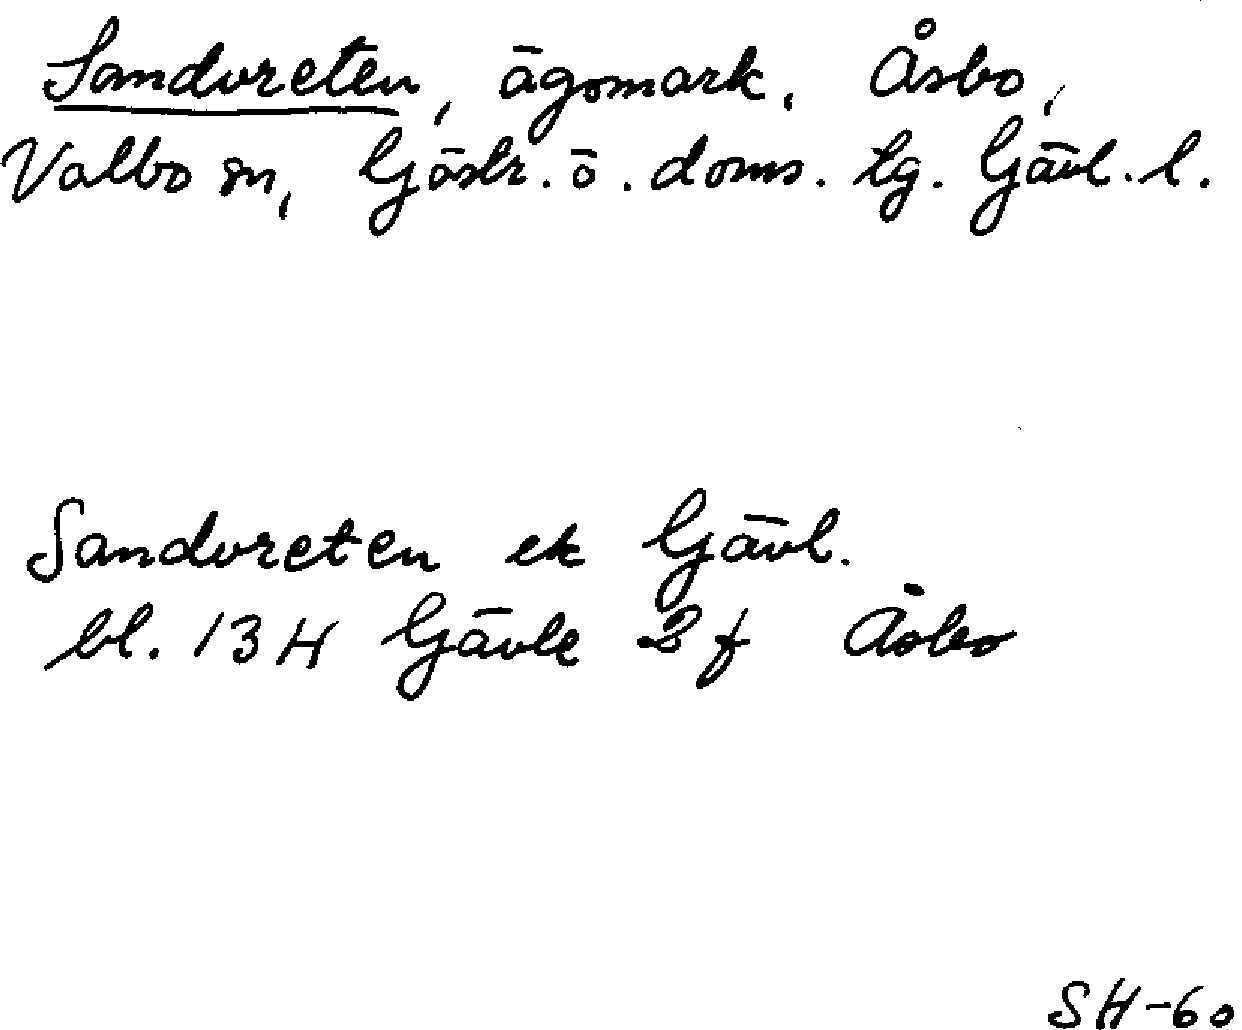 Sandvreten, ägomark, Åsbo,
Valbo sn, Gästr. ö. doms. tg. Gävl. l.
Sandvreten ek Gävl.
bl. 13 H Gävle 3 f Åsbo
SH-60